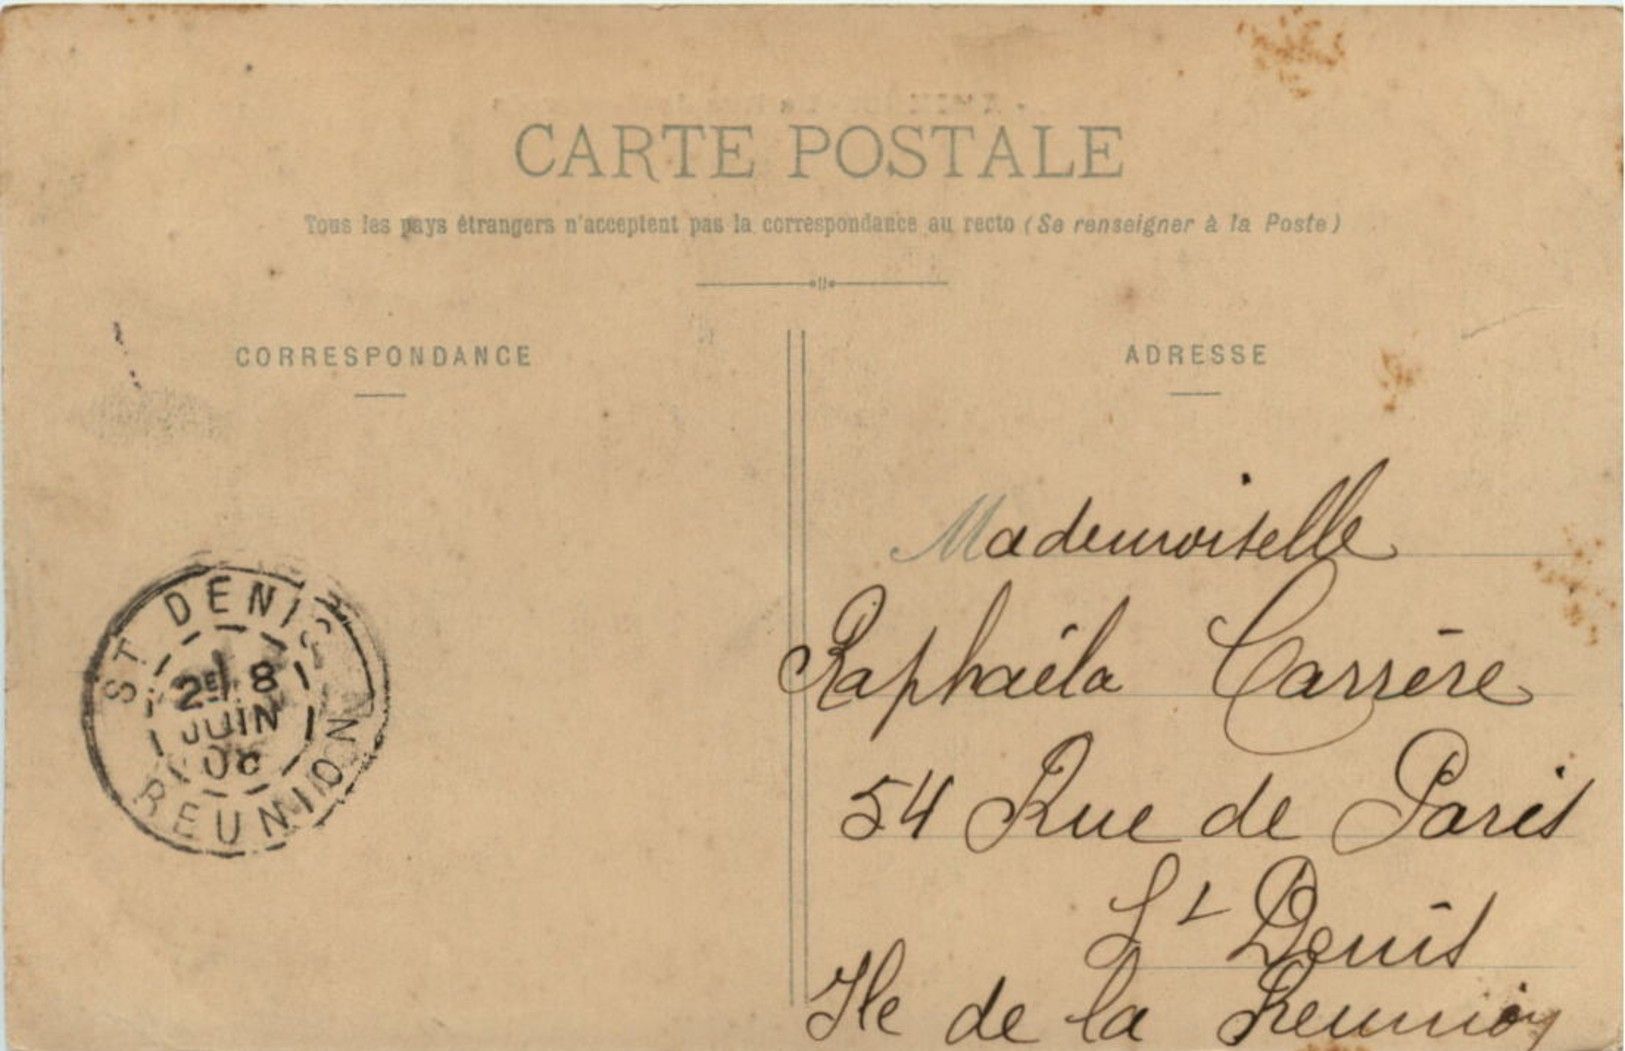 CARTE POSTALE
Tous les pays étrangers n'acceptent pas la correspondance au recto (Se renseigner à la Poste)
CORRESPONDANCE
ADRESSE
Mademoiselle
Raphaëla Carrère
54 Rue de Paris
St Denis
Ile de la Réunion
ST DENIS
2E 8
JUIN
06
REUNION